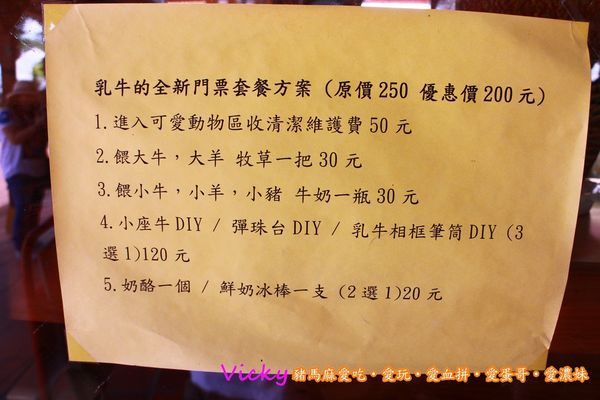 乳牛的全新門票套餐方案 (原價250 優惠價200元)
1.進入可愛動物區收清潔維護費 50 元
2.餵大牛，大羊 牧草一把 30 元
3.餵小牛，小羊，小豬 牛奶一瓶 30 元
4.小座牛 DIY / 彈珠台 DIY / 乳牛相框筆筒 DIY (3
選 1)120 元
5.奶酪一個 / 鮮奶冰棒一支 (2 選 1)20 元
Vicky 豬馬麻愛吃。愛玩。愛血拼。愛蛋哥。愛濃妹